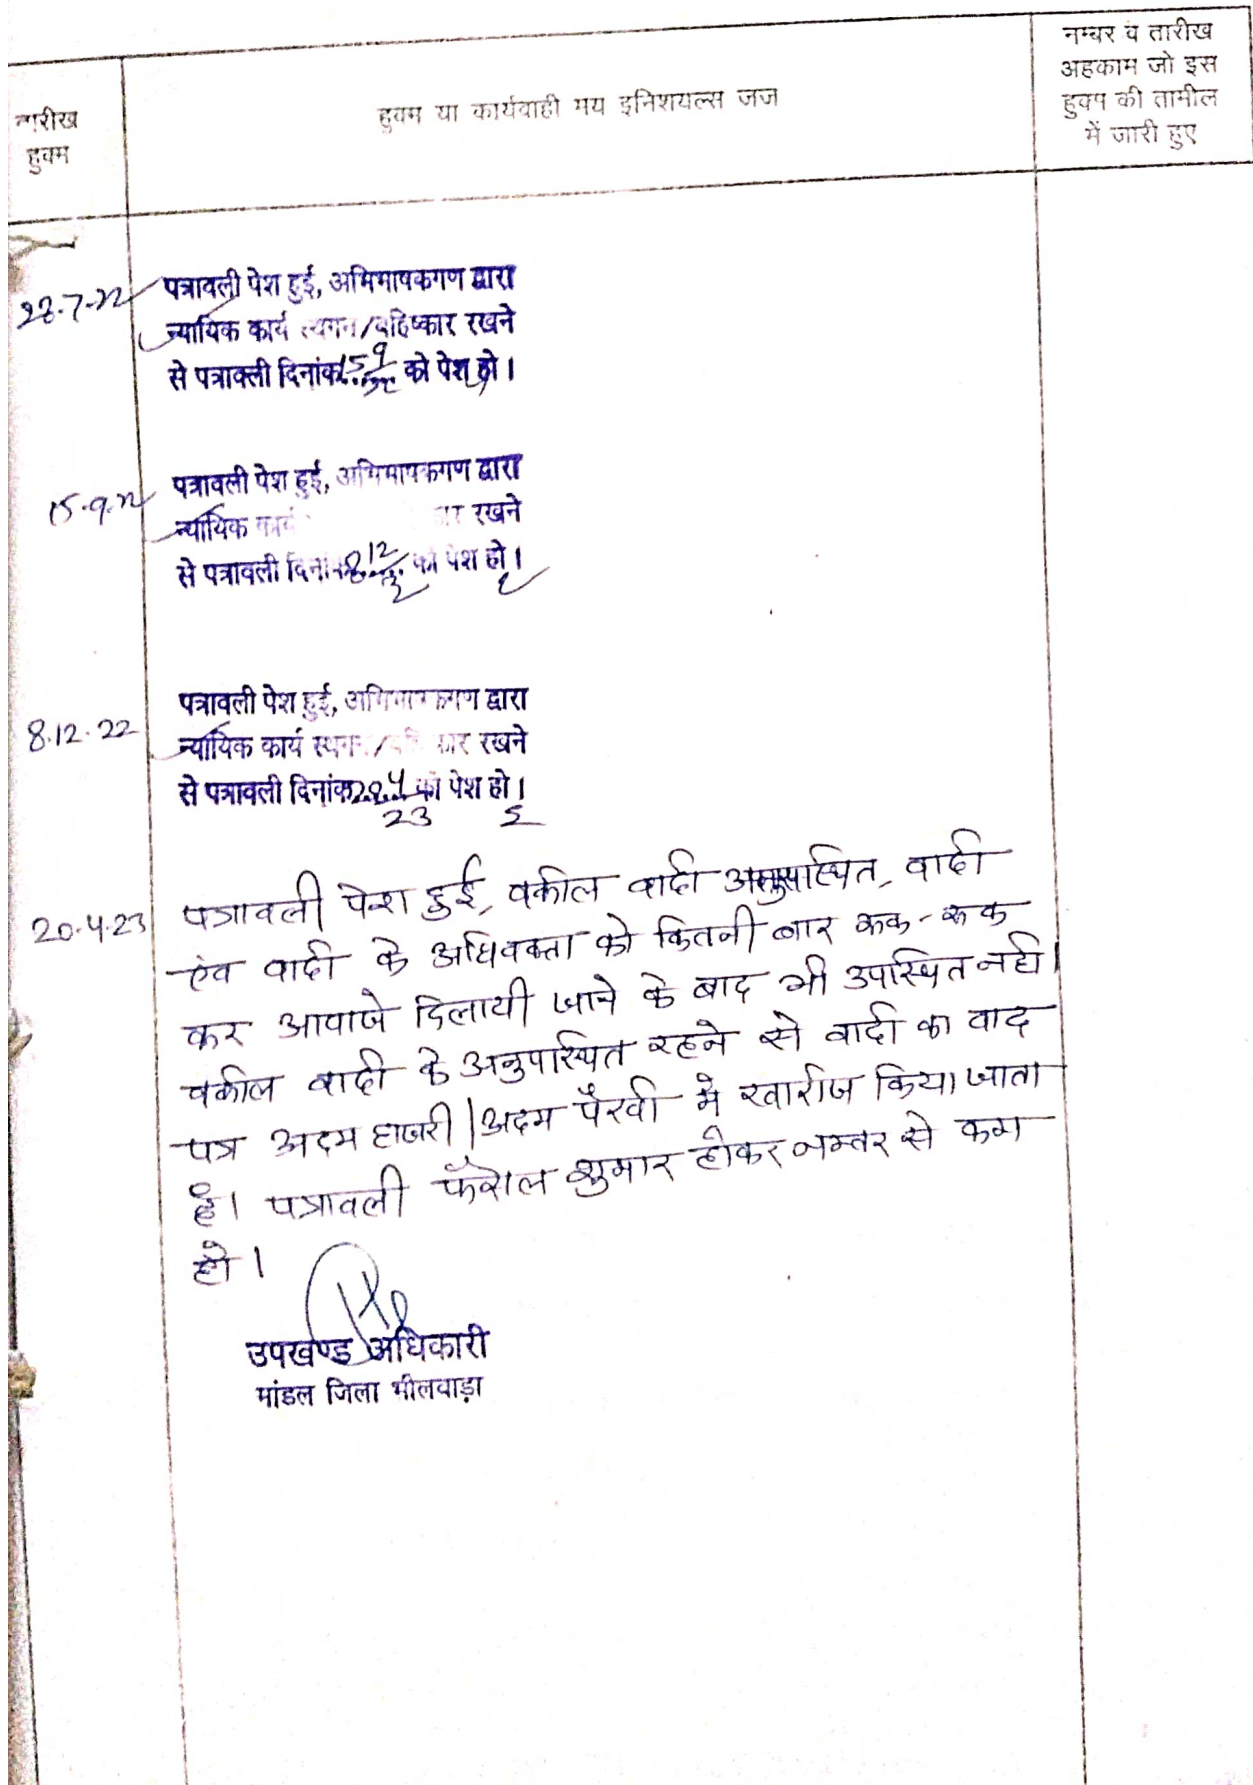 तारीख
हुक्म
हुक्म या कार्यवाही मय इनिशयल्स जज
नम्बर व तारीख
अहकाम जो इस
हुक्म की तामील
में जारी हुए
28-7-22
पत्रावली पेश हुई, अभिभाषकगण द्वारा
न्यायिक कार्य स्थगन/बहिष्कार रखने
से पत्रावली दिनांक 15 9 को पेश हो।
15-9-22
पत्रावली पेश हुई, अभिभाषकगण द्वारा
न्यायिक कार्य रखने
से पत्रावली दिनांक 8 12 को पेश हो।
8.12.22
पत्रावली पेश हुई, अभिभाषकगण द्वारा
न्यायिक कार्य स्थगन/ रखने
से पत्रावली दिनांक 4 को पेश हो।
23
20-4-23
पत्रावली पेश हुई, वकील वादी अनुपस्थित, वादी
एंव वादी के अधिवक्ता को कितनी बार रूक-रूक
कर आवाजे दिलायी जाने के बाद भी उपस्थित नही।
वकील वादी के अनुपस्थित रहने से वादी का वाद
पत्र अदम हाजरी/अदम पैरवी मे खारीज किया जाता
है। पत्रावली फैसल शुमार होकर नम्बर से कम
हो।
उपखण्ड अधिकारी
मांडल जिला भीलवाड़ा